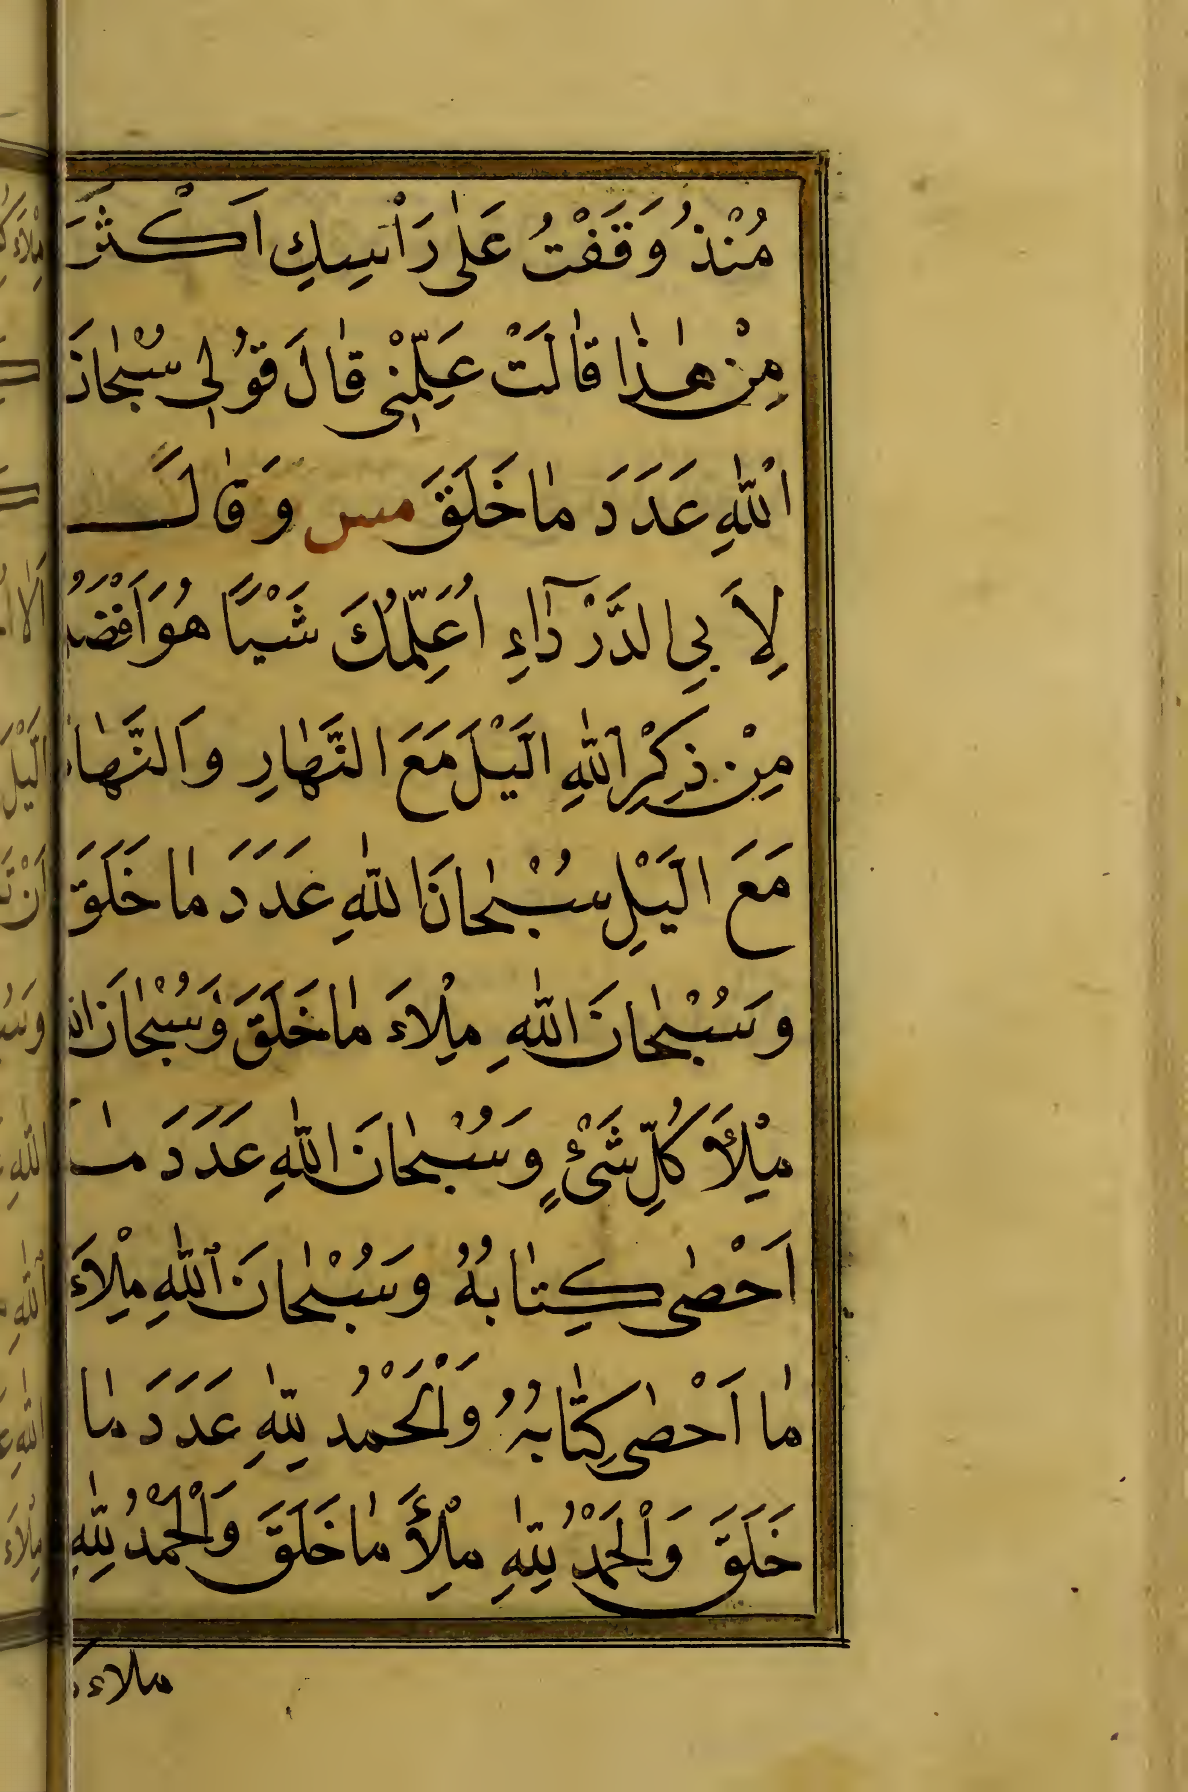 مُنْذُ وَقَفْتُ عَلٰى رَاْسِكِ اَكْثَرَ
مِنْ هٰذَا قَالَتْ عَلِّمْنِي قَالَ قُوْلِي سُبْحَانَ
اللّٰهِ عَدَدَ مَا خَلَقَ مس وَقَالَ
لِاَبِي الدَّرْدَاءِ اُعَلِّمُكَ شَيْاً هُوَ اَفْضَلُ
مِنْ ذِكْرِ اللّٰهِ الَّيْلَ مَعَ النَّهَارِ وَالنَّهَارَ
مَعَ الَّيْلِ سُبْحَانَ اللّٰهِ عَدَدَ مَا خَلَقَ
وَسُبْحَانَ اللّٰهِ مِلْاءَ مَا خَلَقَ وَسُبْحَانَ اللّٰهِ
مِلْأَ كُلِّ شَيْءٍ وَسُبْحَانَ اللّٰهِ عَدَدَ مَا
اَحْصٰى كِتَابُهُ وَسُبْحَانَ اللّٰهِ مِلْاءَ
مَا اَحْصٰى كِتَابُهُ وَالْحَمْدُ لِلّٰهِ عَدَدَ مَا
خَلَقَ وَالْحَمْدُ لِلّٰهِ مِلْأَ مَا خَلَقَ وَالْحَمْدُ لِلّٰهِ
ملاء